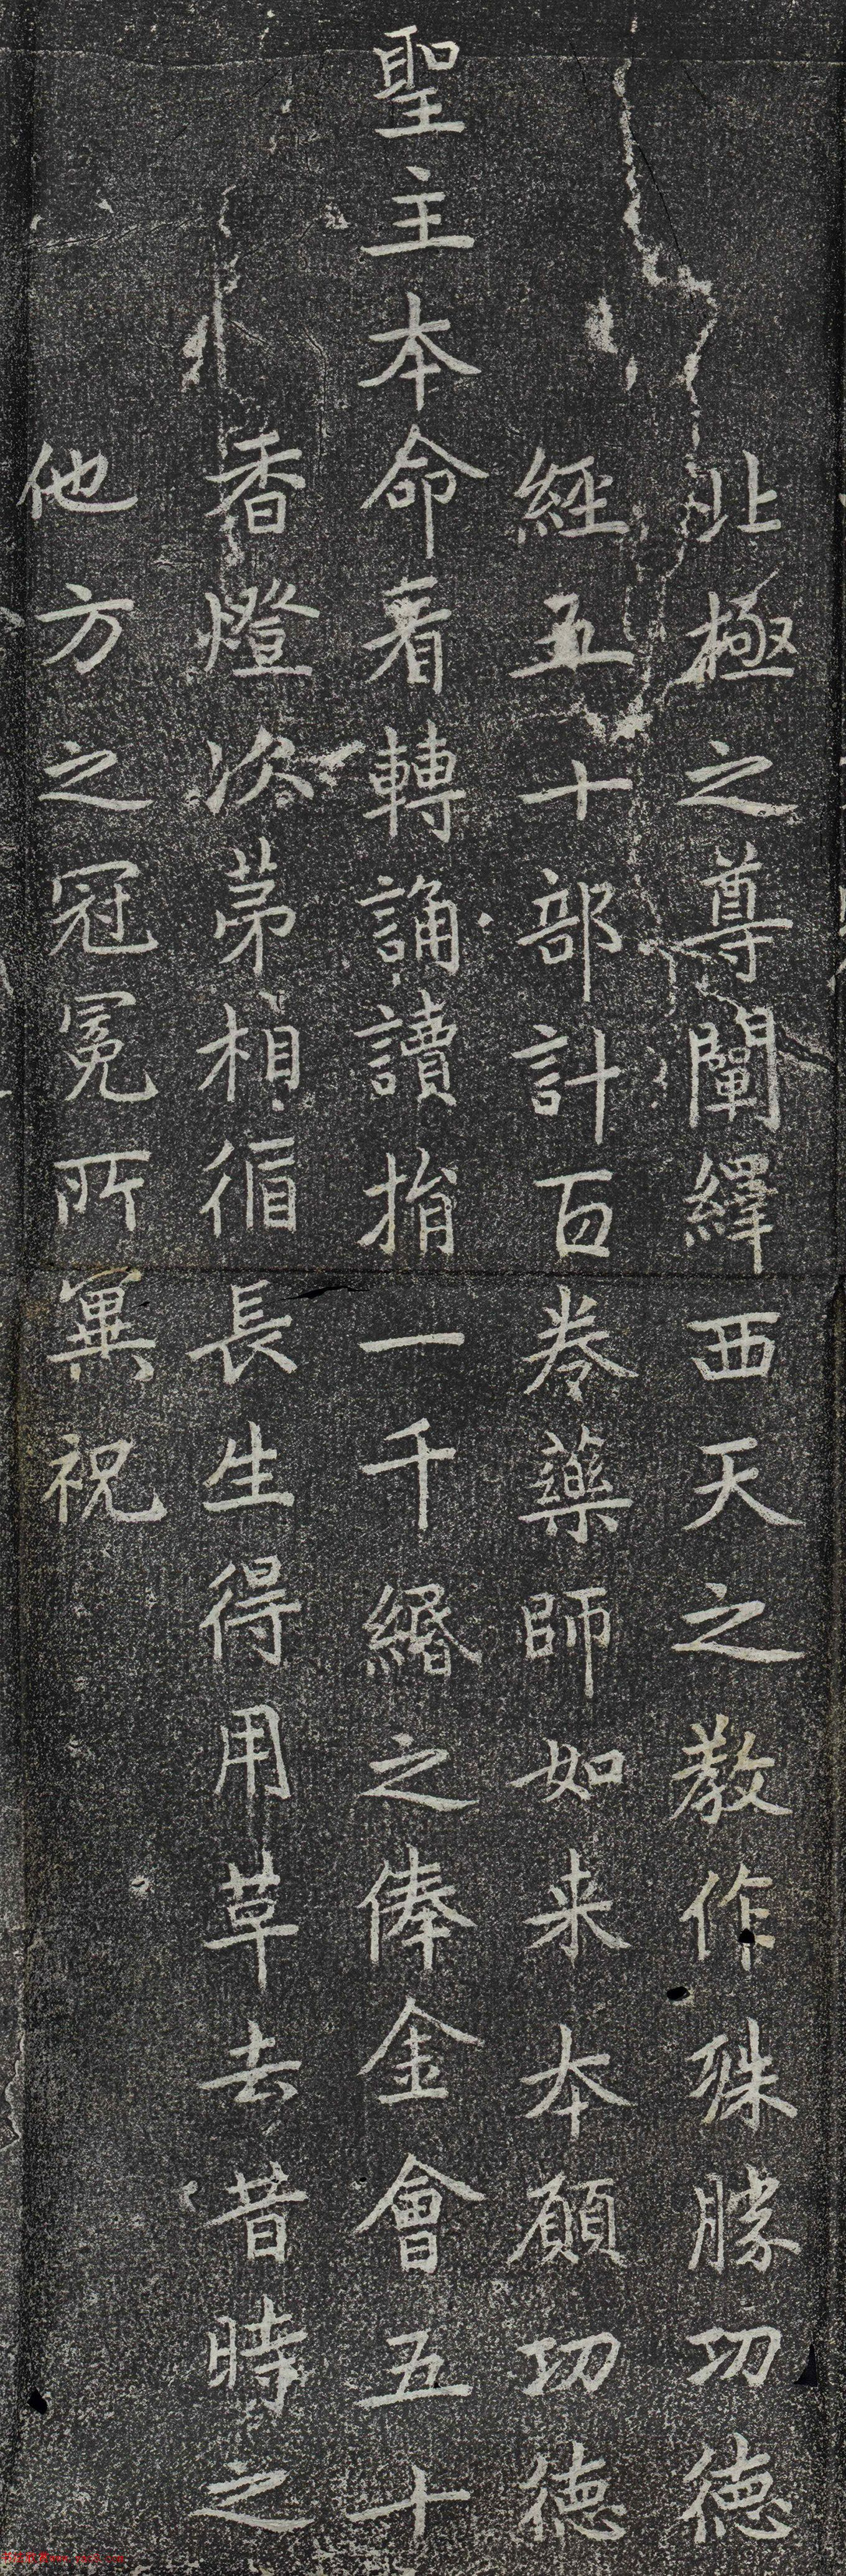 北極之尊闡繹西天之教作殊勝功德
經五十部計百卷藥師如来本願功德
聖主本命看轉誦讀捐一千緡之俸金會五十
香燈次苐相循長生得用草去昔時之
他方之冠冕所冀祝